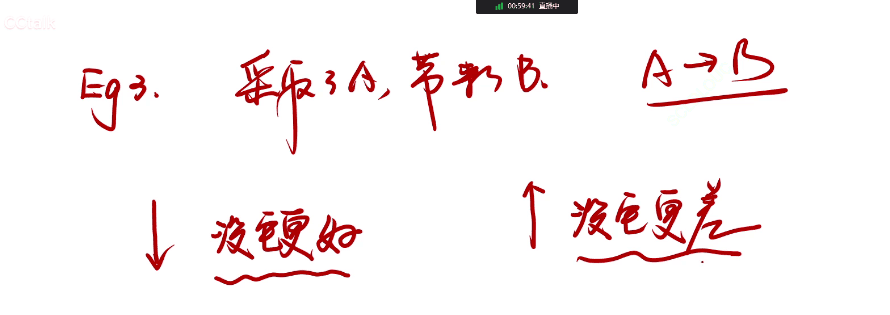 CCtalk
00:59:41 直播中
Eg3. 采取了A,带来了B. A→B
↓ 没它更好 ↑ 没它更差